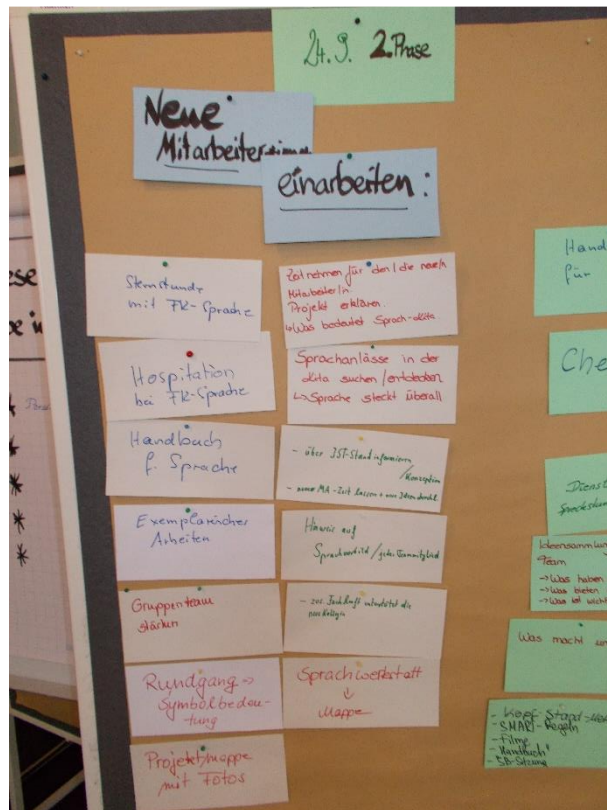 24.9. 2. Phase
Neue
Mitarbeiter
einarbeiten:
Sternstunde
mit FK-Sprache
Hospitation
bei FK-Sprache
Handbuch
f. Sprache
Exemplarischer
Arbeiten
Gruppenteam
stärken
Rundgang →
Symbolbedeu-
tung
Projektmappe
mit Fotos
Zeit nehmen für den / die neue/n
MitarbeiterIn
Projekt erklären.
↳ Was bedeutet Sprach-Kita.
Sprachanlässe in der
Kita suchen / entdecken
↳ Sprache steckt überall
- über IST-Stand informieren
/ Konzeption
- neuer MA - Zeit lassen
Hinweis auf
Sprachvorbild / jedes Teammitglied
- zus. Fachkraft unterstützt die
neue Kollegin
Sprachwerkstatt
↓
Mappe
Hand
für
Che
Dienst
Ideensammlung
Team
→ Was haben
→ Was bieten
→ Was ist
Was macht
- Kopf-Stand
- SMART-Regeln
- Filme
- Handbuch